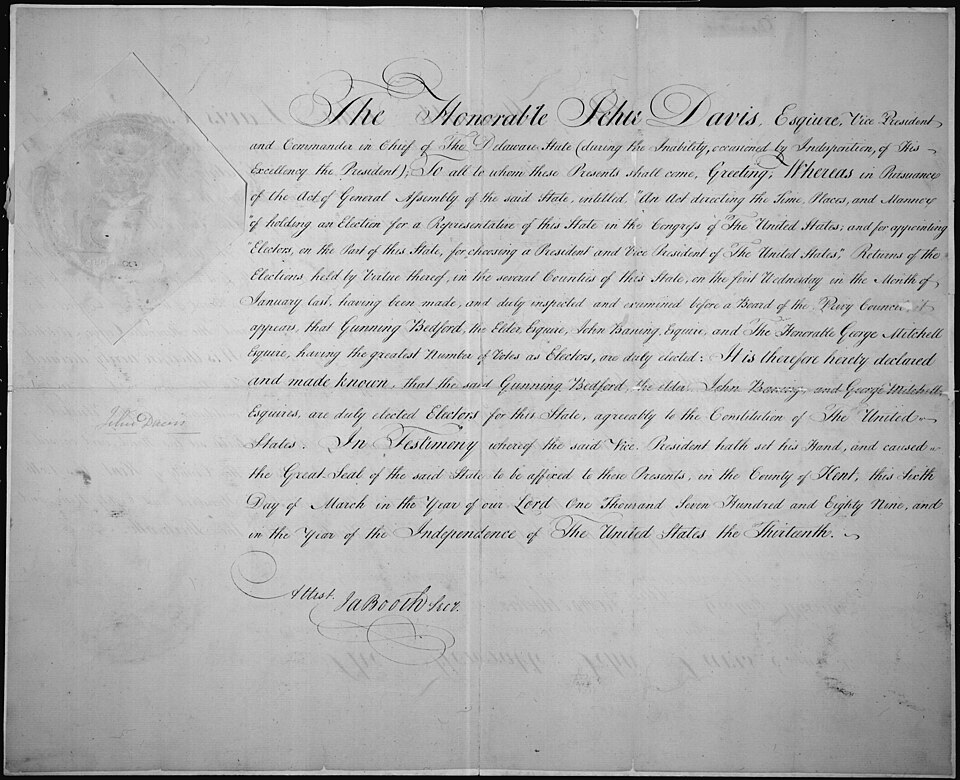 The Honorable John Davis, Esquire, Vice President
and Commander in Chief of The Delaware State (during the Inability, occasioned by Indisposition, of His
Excellency the President); To all to whom these Presents shall come, Greeting; Whereas in Pursuance
of the Act of General Assembly of the said State, entitled, "An Act directing the Time, Places, and Manner
"of holding an Election for a Representative of this State in the Congress of The United States; and for appointing
"Electors, on the Part of this State, for choosing a President and Vice President of The United States," Returns of the
Elections held by Virtue thereof, in the several Counties of this State, on the first Wednesday in the Month of
January last, having been made, and duly inspected and examined before a Board of the Privy Council, it
appears, that Gunning Bedford, the Elder, Esquire, John Baning, Esquire, and The Honorable George Mitchell
Esquire, having the greatest Number of Votes as Electors, are duly elected: It is therefore hereby declared
and made known, that the said Gunning Bedford, the elder, John Baning, and George Mitchell,
Esquires, are duly elected Electors for this State, agreeably to the Constitution of The United
States. In Testimony whereof the said Vice-President hath set his Hand, and caused
the Great Seal of the said State to be affixed to these Presents, in the County of Kent, this Sixth
Day of March in the Year of our Lord One Thousand Seven Hundred and Eighty Nine, and
in the Year of the Independence of The United States the Thirteenth.
John Davis
Attest.
Ja Booth Secy.